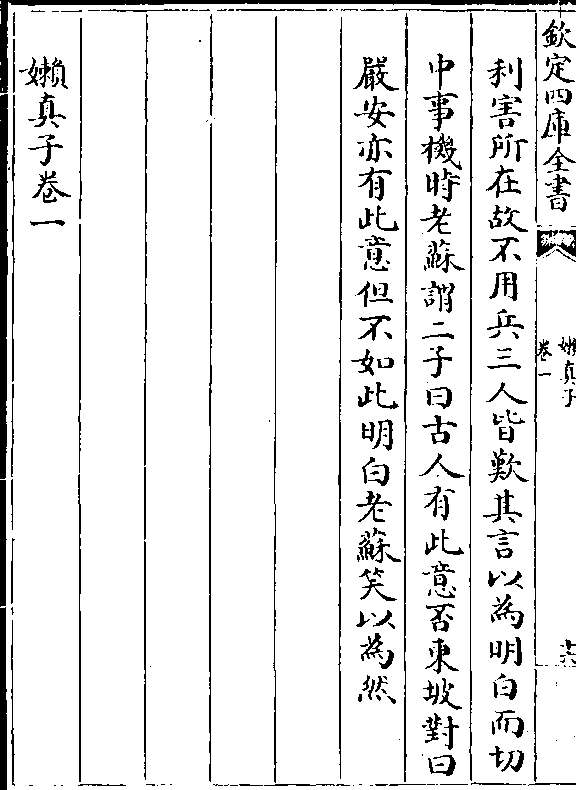 欽定四庫全書
嬾真子
卷一
十六
利害所在故不用兵三人皆歎其言以為明白而切
中事機時老蘇謂二子曰古人有此意否東坡對曰
嚴安亦有此意但不如此明白老蘇笑以為然
嬾真子卷一